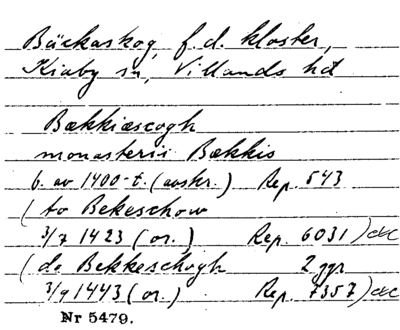 Bäckaskog, f.d. kloster,
Kiaby sn, Villands hd
Bækkiæscogh
monasterii Bækkis
b. av 1400-t. (avskr.) Rep. 543
( to Bekeschow
3/7 1423 (or.) Rep. 6031 ) dC
( de Bekkeschogh 2 ggr
3/9 1443 (or.) Rep. 7357 ) dC
Nr 5479.